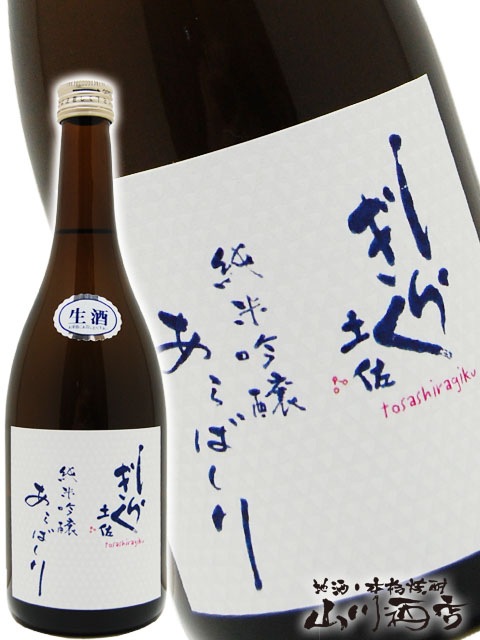 生酒
しらぎく
土佐
tosashiragiku
純米吟醸
あらばしり
しらぎく
土佐
tosashiragiku
純米吟醸
あらばしり
地酒・本格焼酎
山川酒店